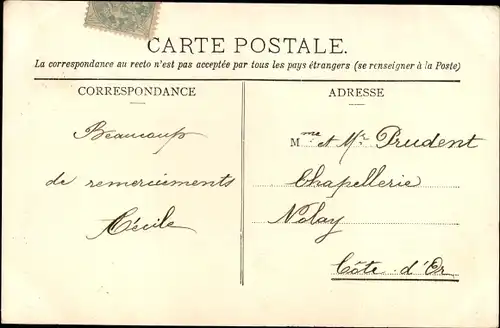 CARTE POSTALE.
La correspondance au recto n'est pas acceptée par tous les pays étrangers (se renseigner à la Poste)
CORRESPONDANCE
Beaucoup
de remerciements
Cécile
ADRESSE
Mme et Mr Prudent
Chapellerie
Nolay
Côte-d'Or